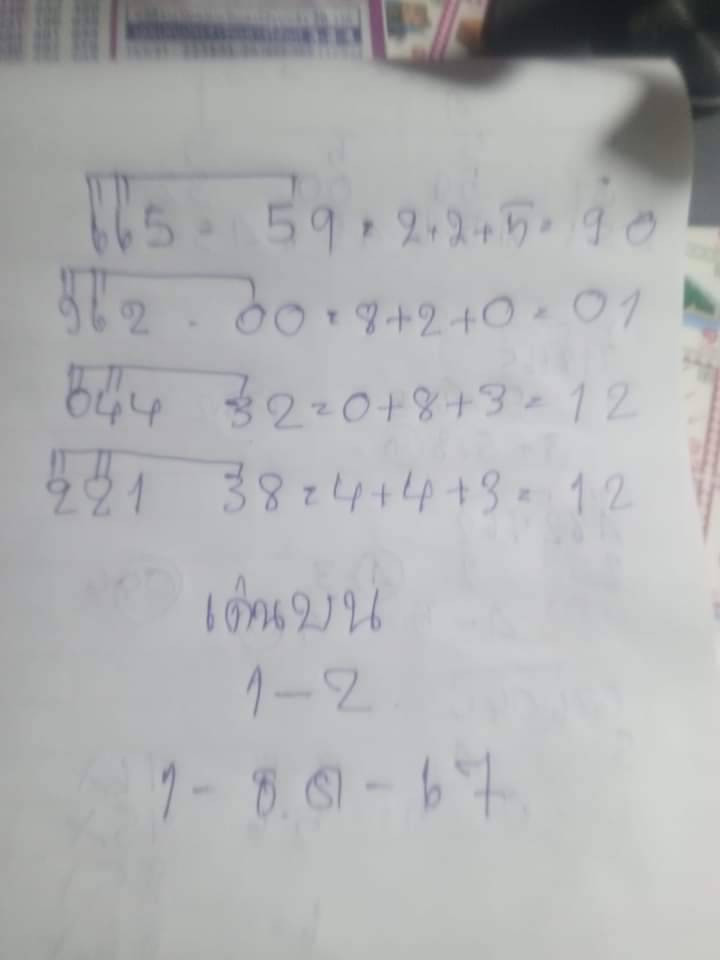 665 - 59 = 2+2+5 = 90
962 - 00 = 8+2+0 = 01
044 32 = 0+8+3 = 12
221 38 = 4+4+3 = 12
เด่นบน
1-2
1-ธ.ค-67